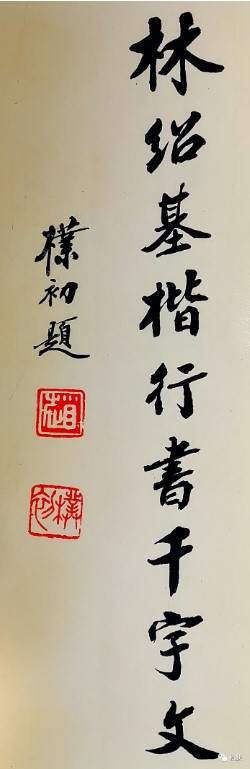 林紹基楷行書千字文
樸初題
趙
樸初